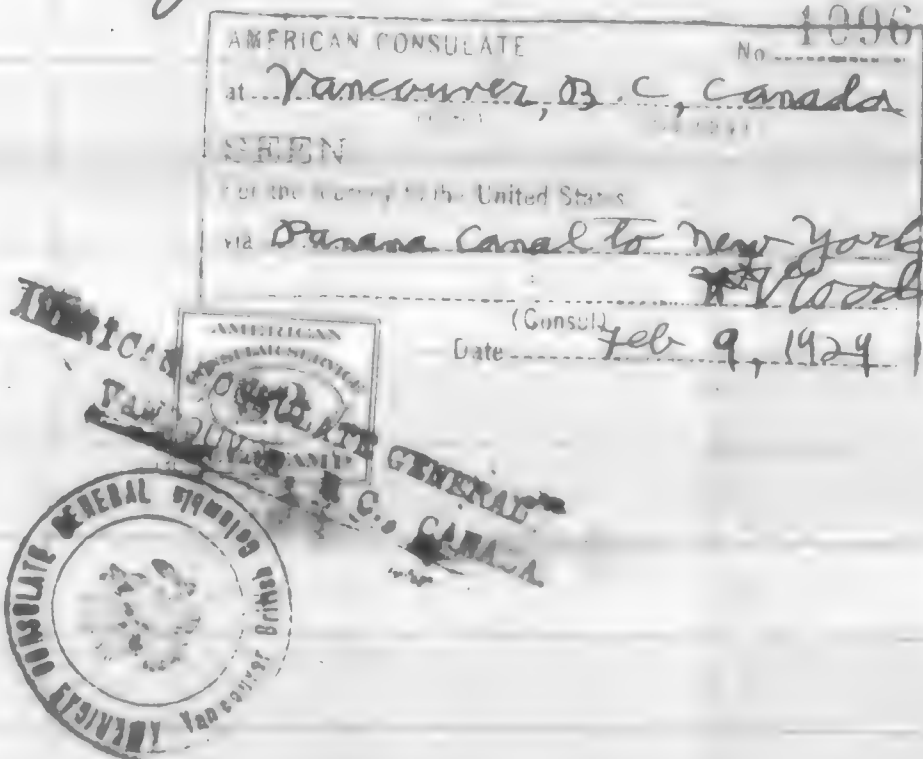 AMERICAN CONSULATE
No. 1096
at Vancouver, B.C, Canada
SEEN
For the journey to the United States
via Panama Canal to New York
Wood
(Consul)
Date Feb 9, 1929
AMERICAN
CONSULAR SERVICE
STAMP
AMERICAN CONSULATE GENERAL
VANCOUVER, B.C., CANADA.
AMERICAN CONSULATE GENERAL
Vancouver British Columbia